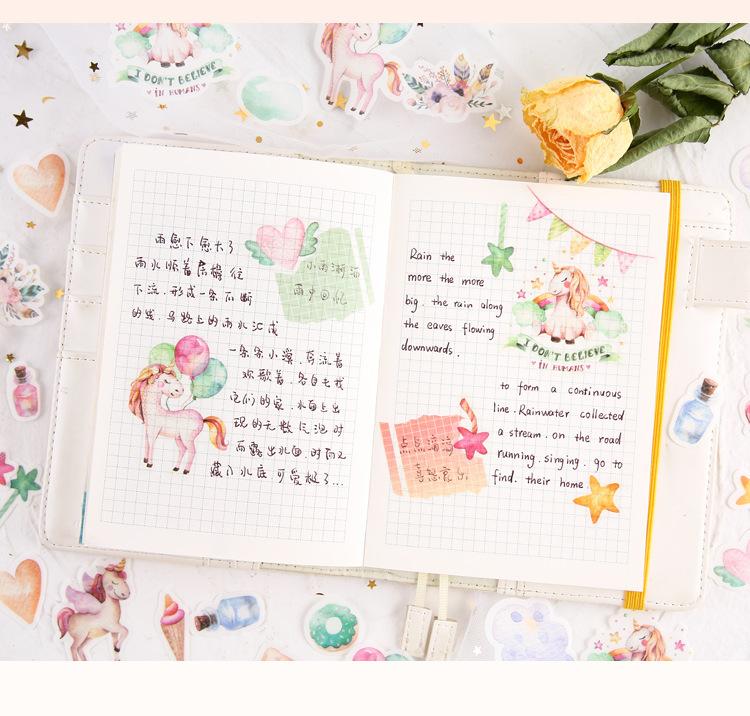 I DON'T BELIEVE
IN HUMANS
雨愈下愈大了
雨水顺着房檐往
下流.形成一条不断
的线.马路上的雨水汇成
一条条小溪.奔流着
欢歌着.各自去找
它们的家.水面上出
现的无数气泡时
而露出水面.时而又
藏入水底可爱极了...
小雨淅沥
雨中回忆
Rain the
more the more
big. the rain along
the eaves flowing
downwards.
I DON'T BELIEVE
IN HUMANS
to form a continuous
line. Rainwater collected
a stream. on the road
running. singing. go to
find. their home
点点滴滴
喜怒哀乐